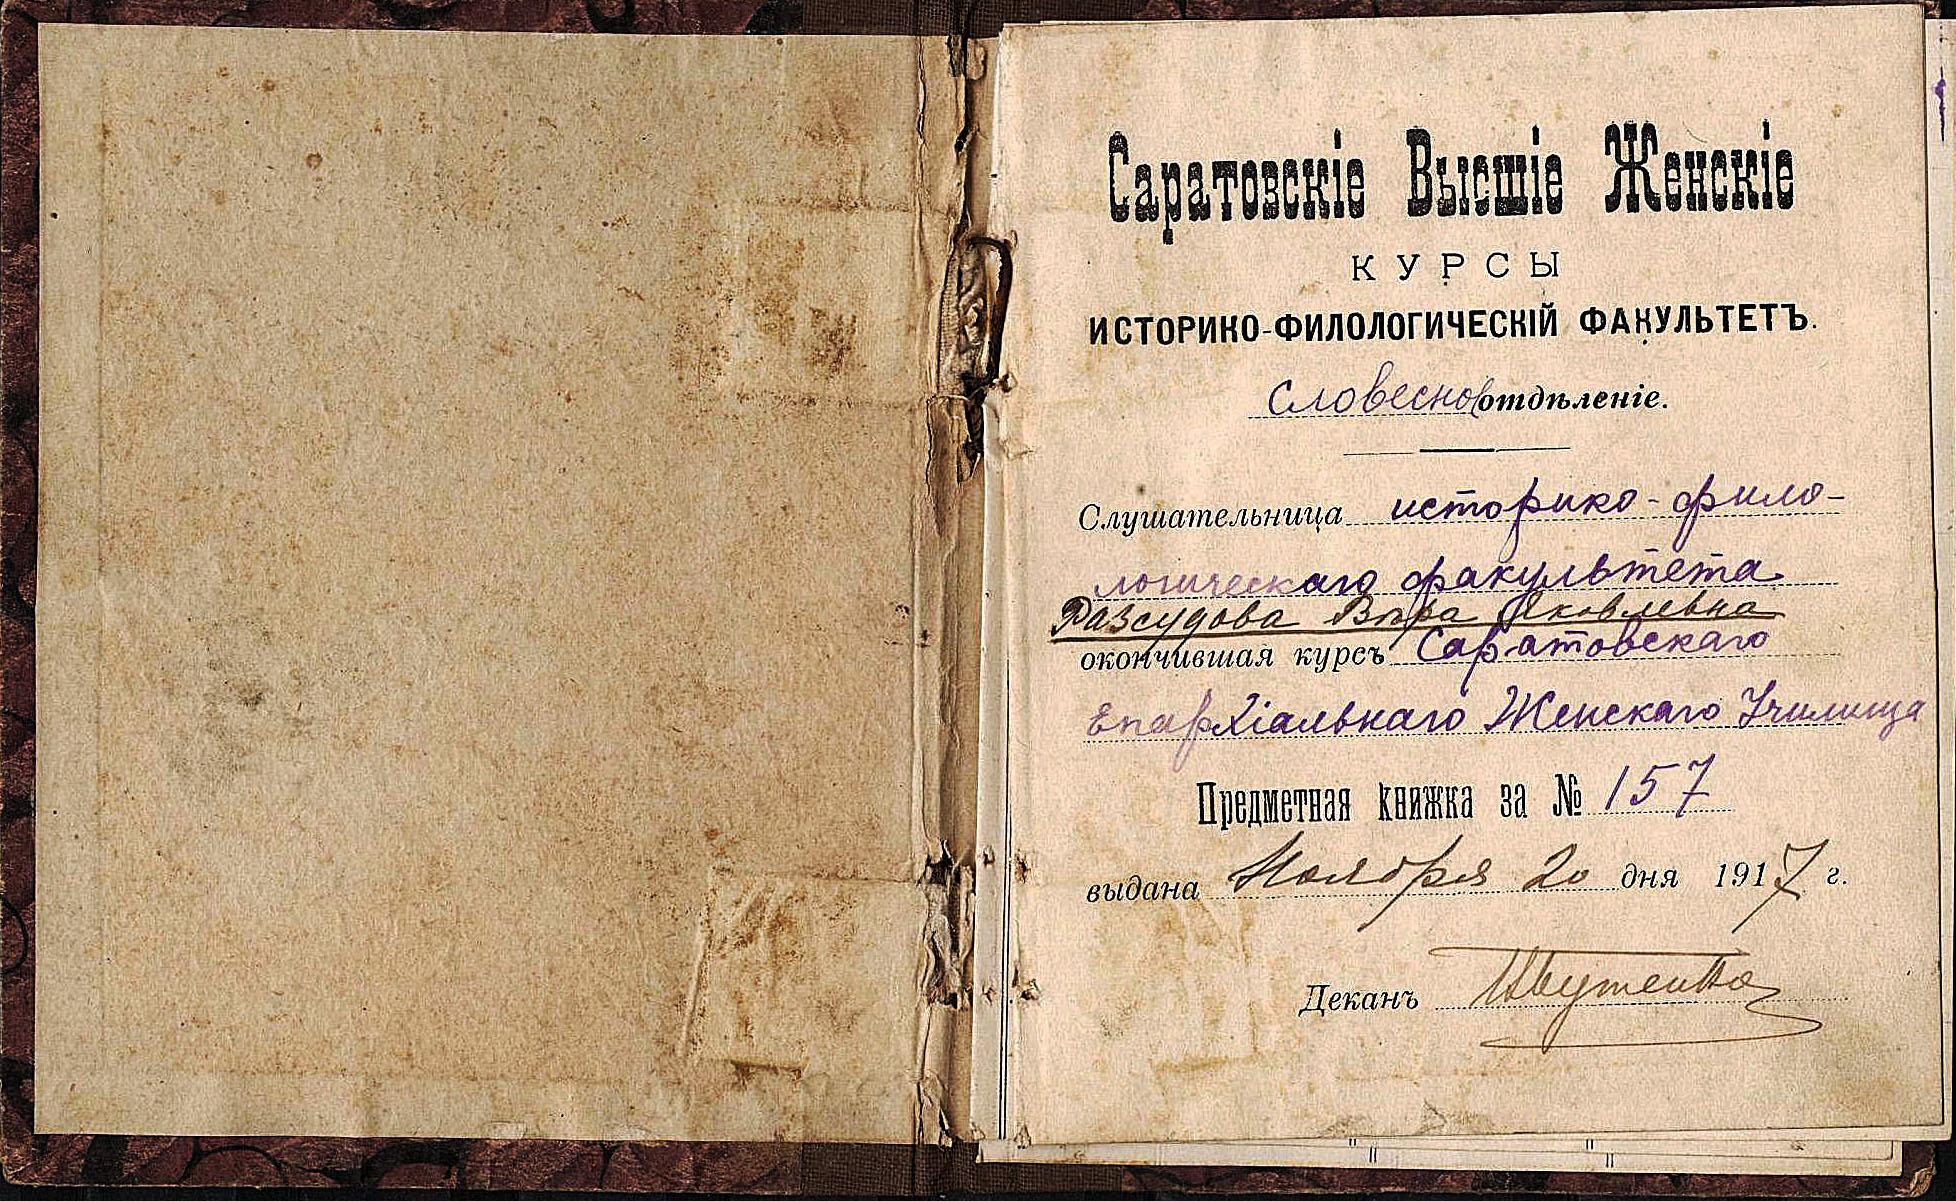 Саратовскіе Высшіе Женскіе
КУРСЫ
ИСТОРИКО-ФИЛОЛОГИЧЕСКІЙ ФАКУЛЬТЕТЪ.
Словесное отдѣленіе.
Слушательница историко-фило-
логическаго факультета
Разсудова Вѣра Яковлевна
окончившая курсъ Саратовскаго
Епархіальнаго Женскаго Училища
Предметная книжка за № 157
выдана Ноября 20 дня 1917 г.
Деканъ